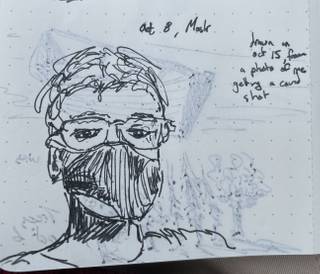 Oct 8, Mask
drawn on
oct 15 from
a photo of me
getting a covid
shot